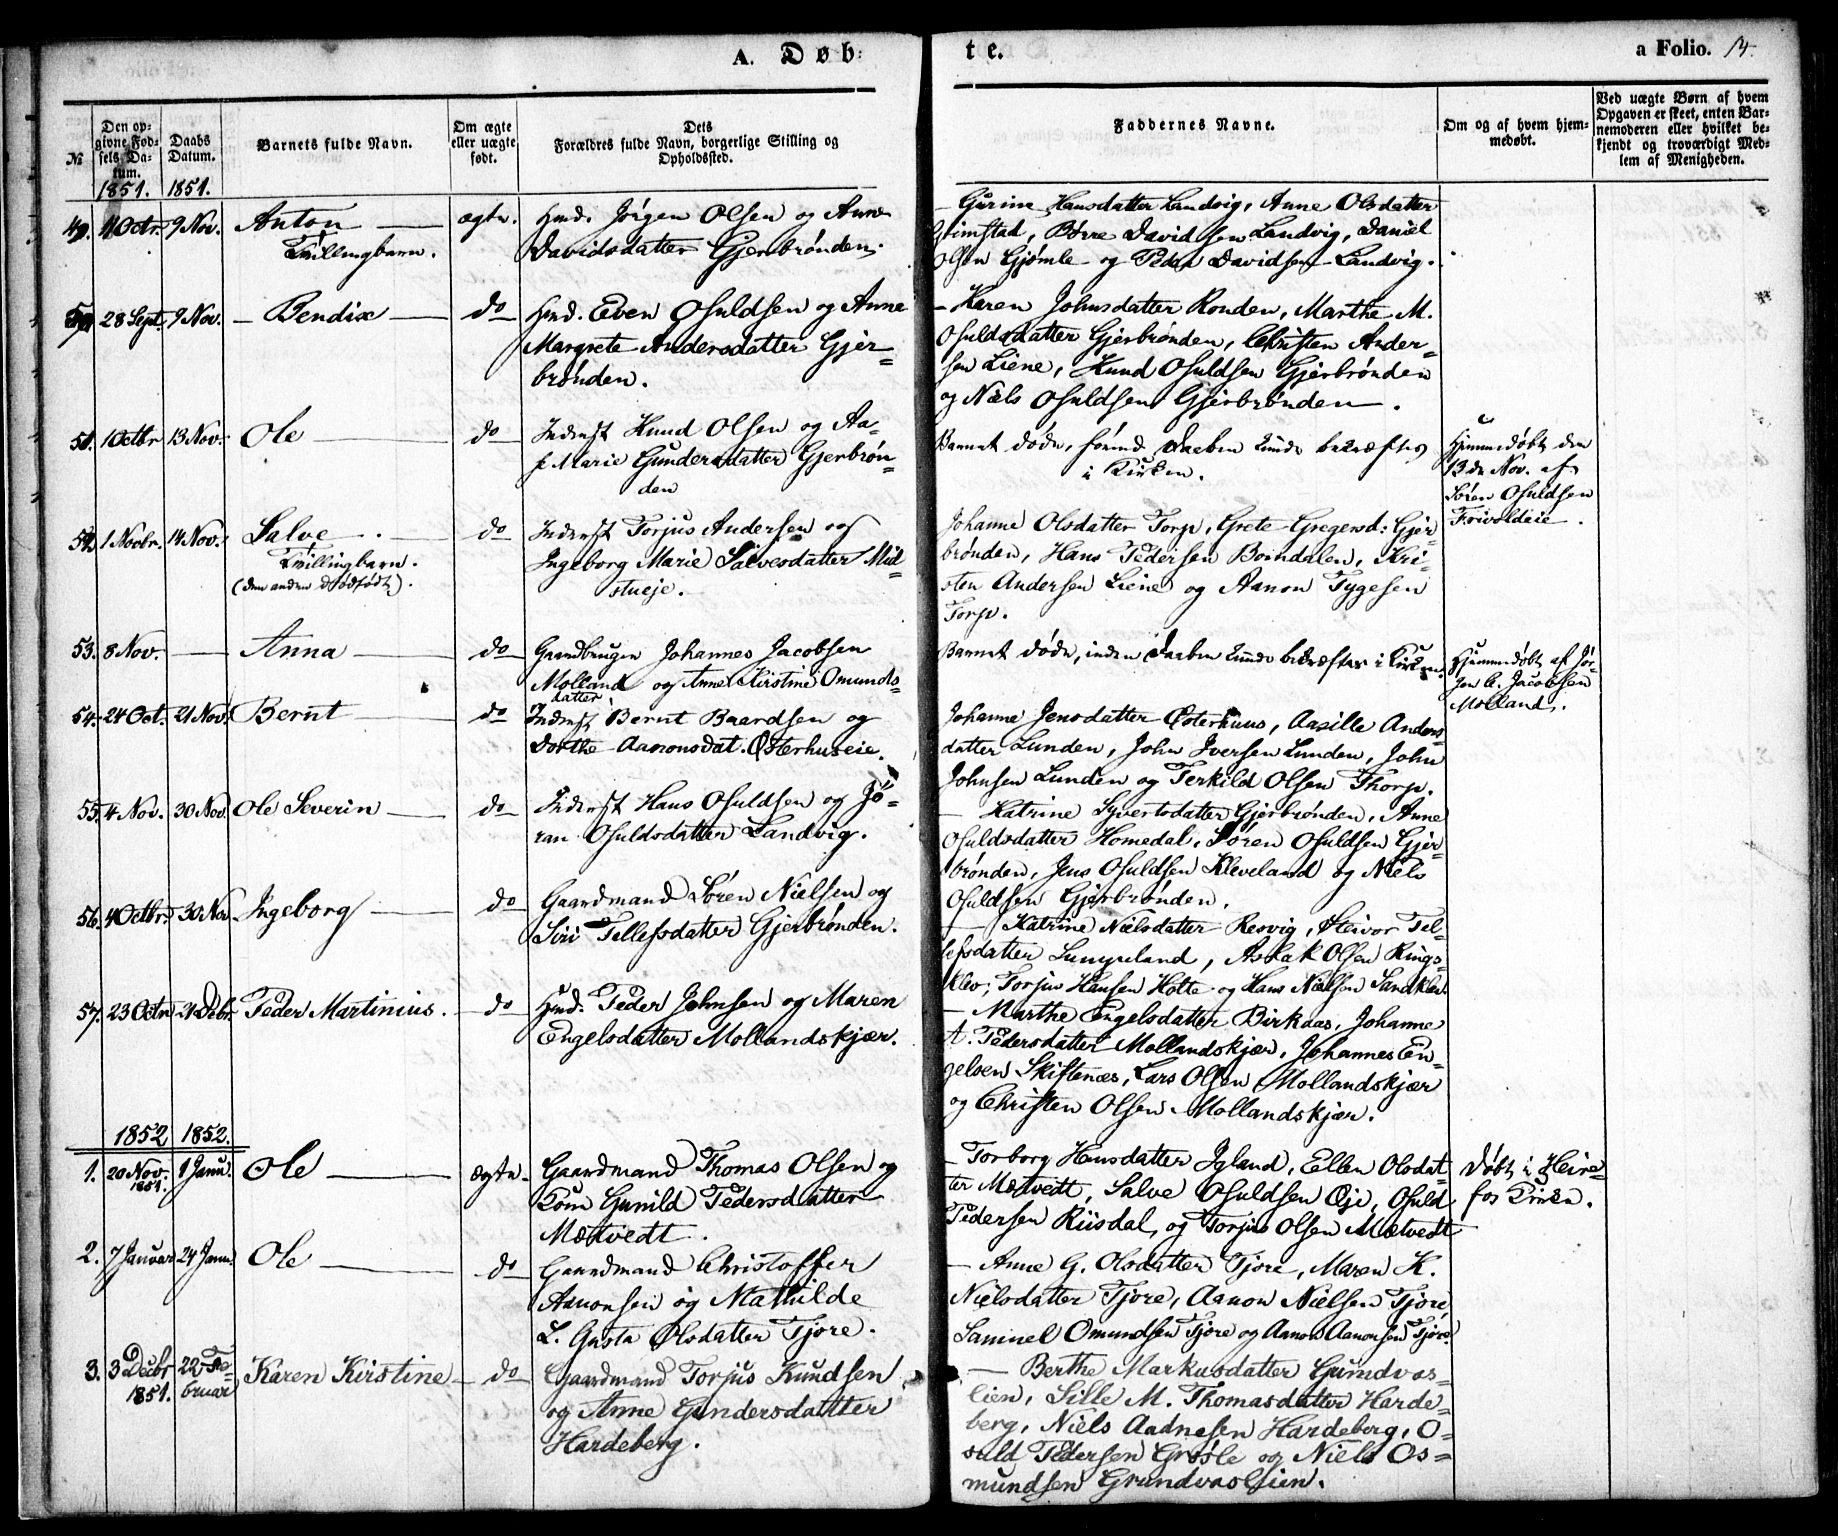 A. Døb:
te.
a Folio. 14.
№
Den opgivne Fødsels Datum.
Daabs Datum.
Barnets fulde Navn.
Om ægte eller uægte født.
Dets Forældres fulde Navn, borgerlige Stilling og Opholdssted.
Faddernes Navne.
Om og af hvem hjemmedøbt.
Ved uægte Børn af hvem Opgaven er skeet, enten Barnemoderen eller hvilket bekjendt og troværdigt Medlem af Menigheden.
1851. 1851.
49. 4 Octr. 9 Nov. Anton ægte. Huusmd. Jörgen Olsen og Anne
Tvillingbarn. Davidsdatter Gjerbrönden.
Gurine Hansdatter Landvig, Anne Olsdatter
Grimstad, Börre Davidsen Landvig, Daniel
Olsen Gjömle og Peder Davidsen Landvig.
50. 28 Sept. 9 Nov. Bendix do Huusmd. Even Osuldsen og Anne
Margrete Andersdatter Gjer=
brönden.
Karen Johnsdatter Ronden, Marthe M.
Osuldsdatter Gjerbrönden, Christen Ander=
sen Liene, Knud Osuldsen Gjerbrönden
og Niels Osuldsen Gjerbrönden.
51. 1 Octbr 13 Nov. Ole do Inderst Knud Olsen og Aa=
se Marie Gundersdatter Gjerbrön=
den
Barnet döde, förend Daaben kunde bekræftes
i Kirken.
Hjemmedöbt den
13de Nov. af
Sören Osuldsen
Frivoldeie.
52. 1 Novbr. 14 Nov. Salve do Inderst Torjus Andersen og
Tvillingbarn. Ingeborg Marie Salvesdatter Mid=
(den anden dödfödt). stueje.
Johanne Olsdatter Torp, Grete Gregersd: Gjer
brönden, Hans Pedersen Bondalen, Kri=
sten Andersen Liene og Aanon Tygesen
Torp.
53. 8 Nov. Anna do Gaardbruger Johannes Jacobsen
Molland og Anne Kirstine Omunds=
datter
Barnet döde, inden Daaben kunde bekræftes i Kirken.
Hjemmedöbt af Jör=
gen C. Jacobsen
Molland.
54. 24 Oct. 21 Nov. Bernt do Inderst Bernt Baardsen og
Dorthe Aanonsdat. Østerhuseie.
Johanne Jensdatter Østerhuus, Aasille Anders
datter Lunden, John Iversen Lunden, John
Johnsen Lunden og Terkild Olsen Thorp.
55. 4 Nov. 30 Nov. Ole Severin do Inderst Hans Osuldsen og Jö=
ran Osuldsdatter Landvig.
Katrine Syvertsdatter Gjerbrönden, Anne
Osuldsdatter Homedal, Sören Osuldsen Gjer=
brönden, Jens Osuldsen Kleveland og Niels
Osuldsen Gjerbrönden.
56. 4 Octbr. 30 Nov Ingeborg do Gaardmand Sören Nielsen og
Siri Tellefsdatter Gjerbrönden.
Katrine Nielsdatter Resvig, Steivor Tel=
lefsdatter, Aslak Olsen Rings=
klev, Torjus Hansen Holte og Hans Nielsen
57. 23 Octr 21 Debr. Peder Martinius. do Huusmd. Peder Johnsen og Maren
Engelsdatter Mollandskjær.
Marthe Engelsdatter Birkaas, Johanne
A. Pedersdatter Mollandskjær, Johannes En
gelsen Skiftenæs, Lars Olsen Mollandskjær
og Christen Olsen Mollandskjær.
1852 1852.
1. 20 Nov. 1851. 1 Janu. Ole ægte. Gaardmand Thomas Olsen og
Kone Gunild Pedersdatter
Mætvedt.
Torborg Hansdatter Igland, Ellen Olsdat
ter Mætvedt, Salve Osuldsen Øje, Osuld
Pedersen Riisdal, og Torjus Olsen Mætvedt
Döbt i Heire=
fos Kirke.
2. 7 Januar 24 Janu. Ole do Gaardmand Christoffer
Aanonsen og Mathilde
L. Gusta Olsdatter Tjore.
Anne G. Olsdatter Tjore, Maren K.
Nielsdatter Tjore, Aanon Nielsen Tjore
Samuel Omundsen Tjore og Aanon Aanonsen Tjore
3. 3 Decbr 1851. 22 Fe=bruar Karen Kirstine do Gaardmand Torjus Knudsen
og Anne Gundersdatter
Hardeberg.
Berthe Markusdatter Grundvas=
lien, Sille M. Thomasdatter Harde=
berg, Niels Aadnesen Hardeberg, O=
suld Pedersen Grøsle og Niels Os=
mundsen Grundvaslien.